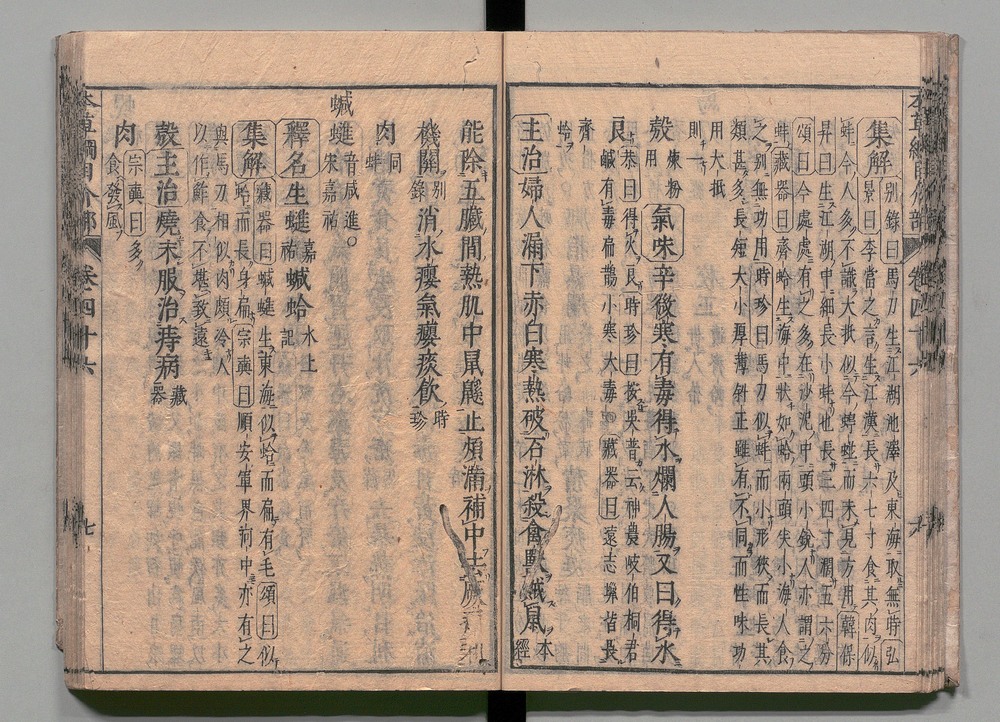 集解別錄曰馬刀生江湖池澤及東海取無時弘
景曰李當之言生江漢長六七寸食其肉似
蚌今人多不識大抵似今蟶而未見方用韓保
昇曰生江湖中細長小蚌也長三四寸濶五六分
頌曰今處處有之多在沙泥中頭小銳人亦謂之
蚌藏器曰齊蛤生海中狀如蛤兩頭尖小海人食
之別無功用時珍曰馬刀似蚌而小形狹而長其
類甚多長短大小厚薄斜正雖有不同而性味功
用大抵
則一
殼用煉粉
氣味辛微寒有毒得水爛人腸又曰得水
良恭曰得火良時珍曰按吳普云神農岐伯桐君
鹹有毒扁鵲小寒大毒藏器曰遠志蠟皆長
齊
蛤
主治婦人漏下赤白寒熱破石淋殺禽獸賊鼠本經
能除五臟間熱肌中鼠鼷止煩滿補中去厥
機關別錄消水癭氣癭痰飲時珍
肉同蚌
蝛𧍧音咸進宋嘉祐
釋名生𧍧嘉祐蝛蛤水土記
集解藏器曰蝛𧍧生東海似蛤而扁有毛頌曰似
蛤而長身扁宗奭曰順安軍界河中亦有之
與馬刀相似肉頗冷人
以作鮓食不堪致遠
殼主治燒末服治痔病藏器
肉宗奭曰多
食發風
卷四十六
七